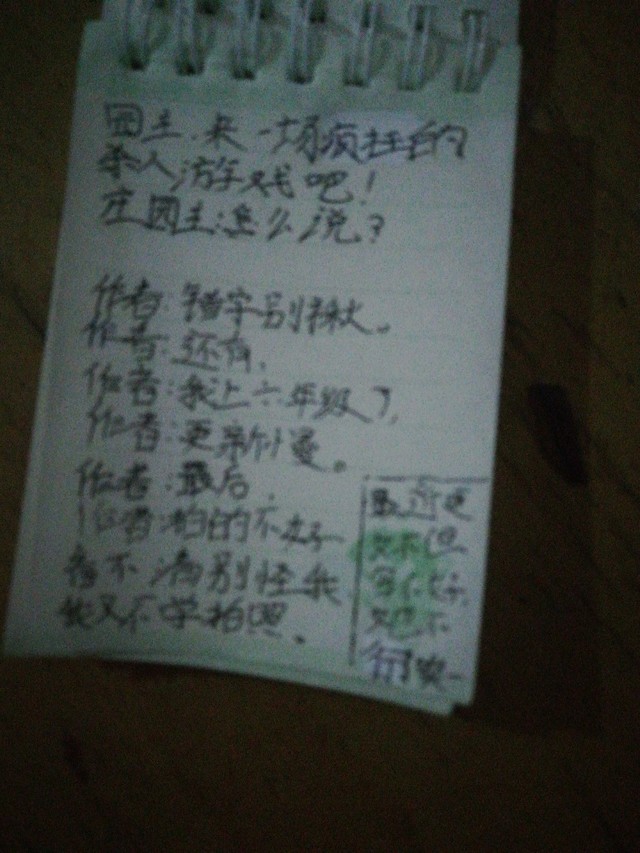 园主.来一场疯狂的
杀人游戏吧!
庄园主:怎么说?
作者:错字别揪。
作者:还有,
作者:我上六年级了,
作者:更新慢。
作者:最后,
作者:拍的不好
看不清别怪我,
我又不学拍照.
最近更
文不但
写不好,
行